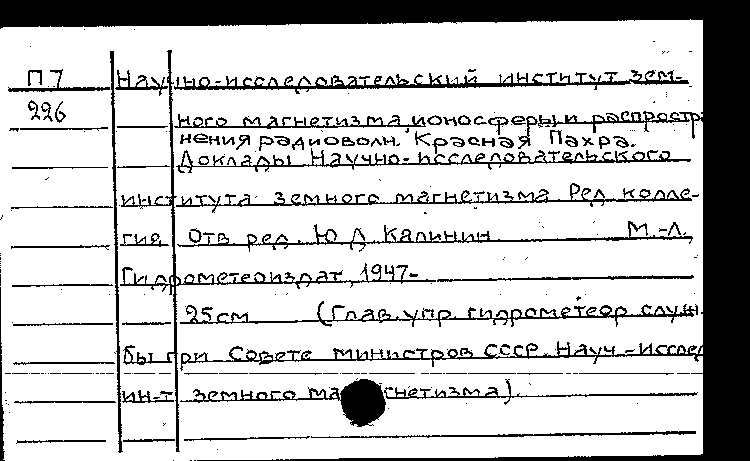 П7 Научно-исследовательский институт зем-
226 ного магнетизма, ионосферы и распростра
нения радиоволн. Красная Пахра.
Доклады Научно-исследовательского
института земного магнетизма Ред колле-
гия Отв ред. Ю Д Калинин М.-Л.,
Гидрометеоиздат, 1947-
25см (Глав. упр. гидрометеор служ.
бы при Совете министров СССР. Науч-исслед
ин-т земного магнетизма).